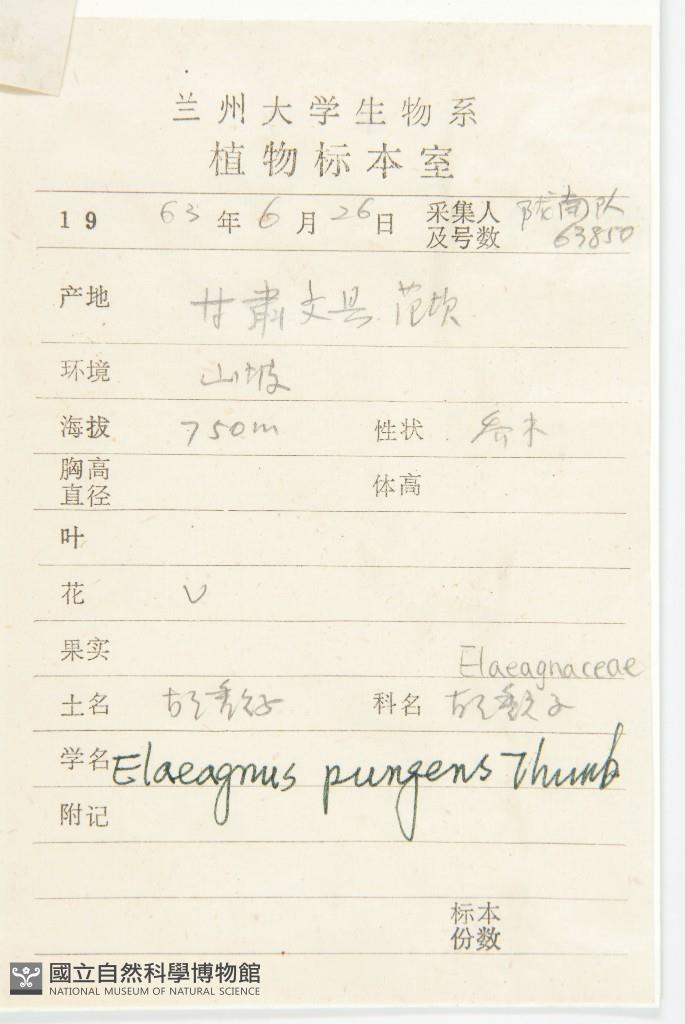 兰州大学生物系
植物标本室
1963年6月26日 采集人及号数 陇南队 63850
产地 甘肃文县范坝
环境 山坡
海拔 750m 性状 乔木
胸高直径 体高
叶
花 V
果实 Elaeagnaceae
土名 胡秃子 科名 胡秃子
学名 Elaeagnus pungens Thunb
附记
标本份数
國立自然科學博物館
NATIONAL MUSEUM OF NATURAL SCIENCE